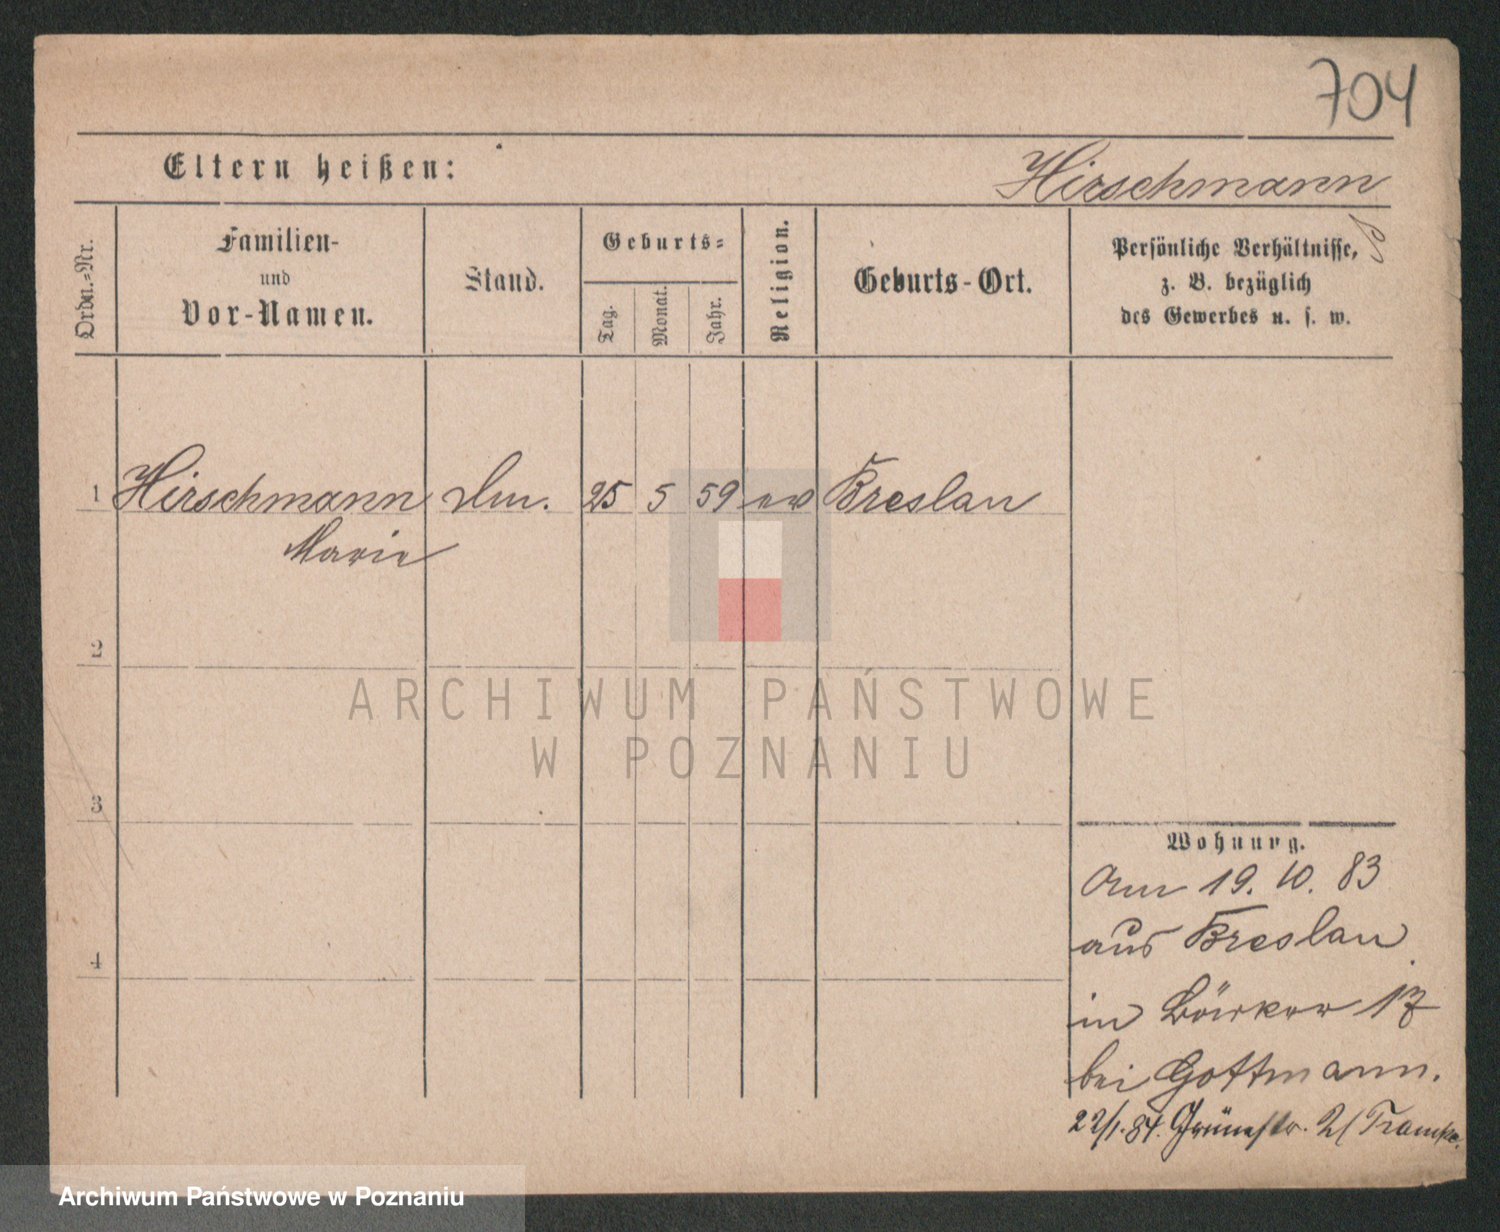 704
Eltern heißen:
Hirschmann
Ordn.-Nr.
Familien-
und
Vor-Namen.
Stand.
Geburts-
Tag.
Monat.
Jahr.
Religion.
Geburts-Ort.
Persönliche Verhältnisse,
z. B. bezüglich
des Gewerbes u. s. w.
1 Hirschmann 25 5 59 ev Breslau
Marie
2
3
4
ARCHIWUM PAŃSTWOWE
W POZNANIU
Wohnung.
Am 19. 10. 83
aus Breslau
in Bäcker 17
bei Gottmann.
22/1. 84. Grünestr. 2/ Trampe.
Archiwum Państwowe w Poznaniu